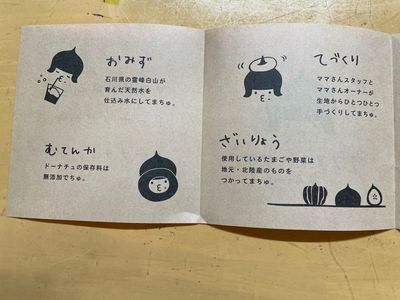 おみず
石川県の霊峰白山が
育んだ天然水を
仕込み水にしてまちゅ。
むてんか
ドーナチュの保存料は
無添加でちゅ。
てづくり
ママさんスタッフと
ママさんオーナーが
生地からひとつひとつ
手づくりしてまちゅ。
ざいりょう
使用しているたまごや野菜は
地元・北陸産のものを
つかってまちゅ